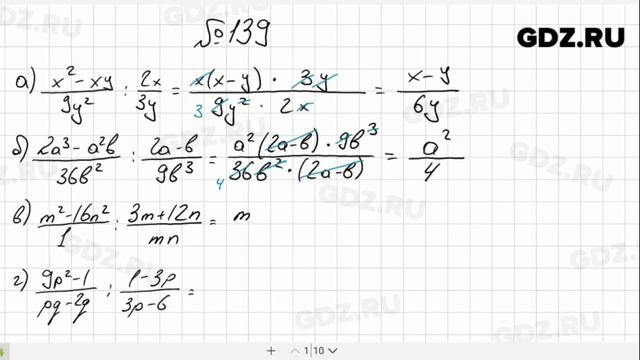 №139
GDZ.RU
а) (x² - xy)/(9y²) : (2x)/(3y) = (x(x-y) · 3y)/(9y² · 2x) = (x-y)/(6y)
3
б) (2a³ - a²b)/(36b²) : (2a-b)/(9b³) = (a²(2a-b) · 9b³)/(36b² · (2a-b)) = a²/4
4
в) (m² - 16n²)/1 : (3m+12n)/(mn) = m
г) (9p² - 1)/(pq - 2q) : (1-3p)/(3p-6) =
GDZ.RU
+ 1|10